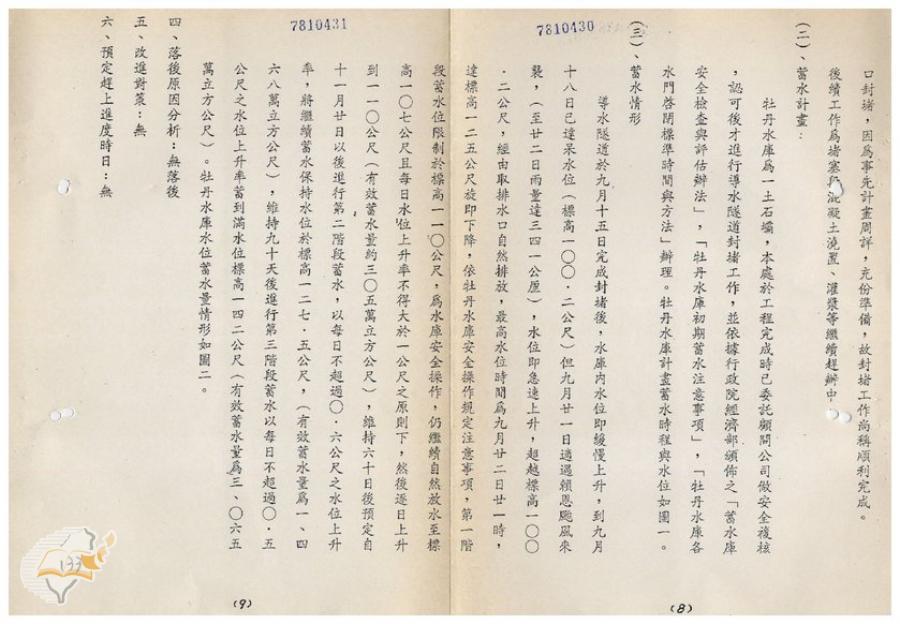 7810430
口封堵，因為事先計畫周詳，充份準備，故封堵工作尚稱順利完成。
後續工作為堵塞段混凝土澆置、灌漿等繼續趕辦中
(二)、蓄水計畫：
牡丹水庫為一土石壩，本處於工程完成時已委託顧問公司做安全複核
，認可後才進行導水隧道封堵工作，並依據行政院經濟部頒佈之「蓄水庫
安全檢查與評估辦法」，「牡丹水庫初期蓄水注意事項」，「牡丹水庫各
水門啓閉標準時間與方法」辦理。牡丹水庫計畫蓄水時程與水位如圖一。
(三)、蓄水情形
導水隧道於九月十五日完成封堵後，水庫內水位即緩慢上升，到九月
十八日已達呆水位（標高一〇〇．二公尺）但九月廿一日遭遇賴恩颱風來
襲，（至廿二日雨量達三四一公厘），水位即急速上升，超越標高一〇〇
．二公尺，經由取排水口自然排放，最高水位時間為九月廿二日廿一時，
達標高一二五公尺旋即下降，依牡丹水庫安全操作規定注意事項，第一階
(8)
7810431
段蓄水位限制於標高一一〇公尺，為水庫安全操作，仍繼續自然放水至標
高一〇七公尺且每日水位上升率不得大於一公尺之原則下，然後逐日上升
到一一〇公尺（有效蓄水量約三〇五萬立方公尺），維持六十日後預定自
十一月廿日以後進行第二階段蓄水，以每日不超過〇．六公尺之水位上升
率，將繼續蓄水保持水位於標高一二七．五公尺，（有效蓄水量為一、四
六八萬立方公尺），維持九十天後進行第三階段蓄水以每日不超過〇．五
公尺之水位上升率蓄到滿水位標高一四二公尺（有效蓄水量為三、〇六五
萬立方公尺）。牡丹水庫水位蓄水量情形如圖二。
四、落後原因分析：無落後
五、改進對策：無
六、預定趕上進度時日：無
(9)
133